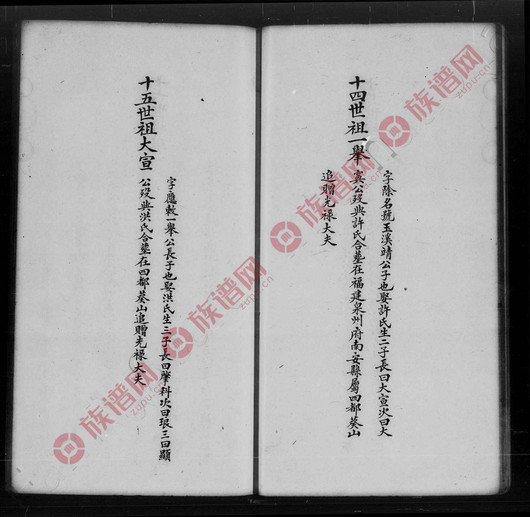 十四世祖一舉
字除名號玉溪靖公子也娶許氏生二子長曰大宣次曰大
賓公歿與許氏合墓在福建泉州府南安縣屬四都葵山
追贈光祿大夫
十五世祖大宣
字應敕一舉公長子也娶洪氏生三子長曰肇科次曰琅三曰顯
公歿與洪氏合墓在四都葵山追贈光祿大夫
族谱网
zupu.cn
族谱网
zupu.cn
族谱网
zupu.cn
族谱网
zupu.cn